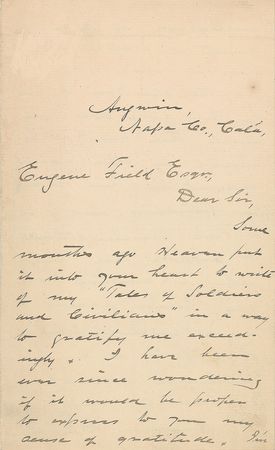 Angwin,
Napa Co., Cala,
Eugene Field Esqr,
Dear Sir,
Some
months ago Heaven put
it into your heart to write
of my "Tales of Soldiers
and Civilians" in a way
to gratify me exceed-
ingly. I have been
ever since wondering
if it would be proper
to express to you my
sense of gratitude. I'm